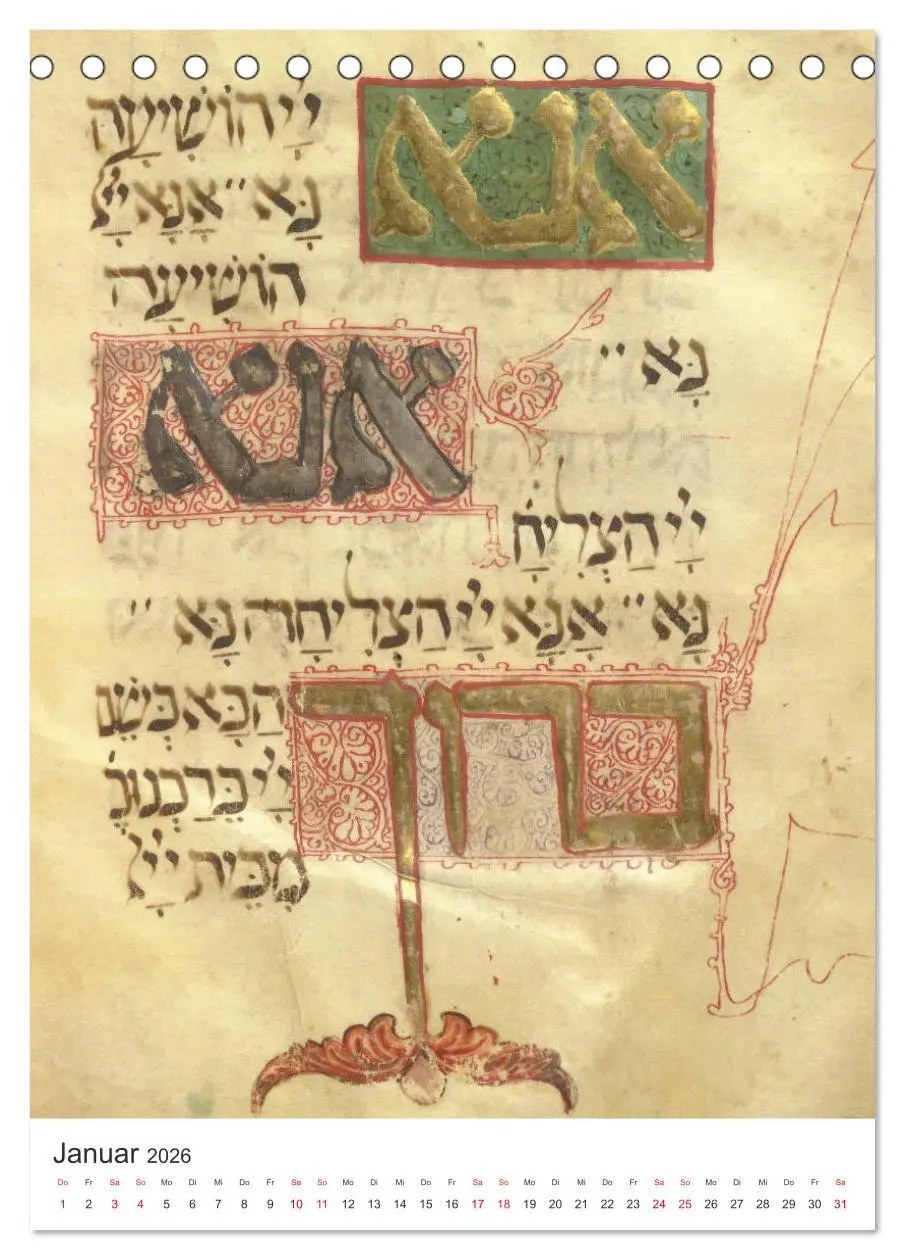 אנא יְיָ הוֹשִׁיעָה
נָּא ״ אָנָּא יְיָ
הוֹשִׁיעָה
נָּא ״
אנא
יְיָ הַצְלִיחָ
נָּא ״ אָנָּא יְיָ הַצְלִיחָה נָּא ״
ברוך הַבָּא בְּשֵׁם
יְיָ בֵּרַכְנוּכֶ
מִבֵּית יְיָ
Januar 2026
Do Fr Sa So Mo Di Mi Do Fr Sa So Mo Di Mi Do Fr Sa So Mo Di Mi Do Fr Sa So Mo Di Mi Do Fr Sa
1 2 3 4 5 6 7 8 9 10 11 12 13 14 15 16 17 18 19 20 21 22 23 24 25 26 27 28 29 30 31